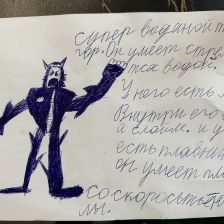 супер водяной т
гер. Он умеет
тся водой.
У него есть
Внутри его
и слайм. и у
есть плавни
он умеет пл
со скоростью
лы.